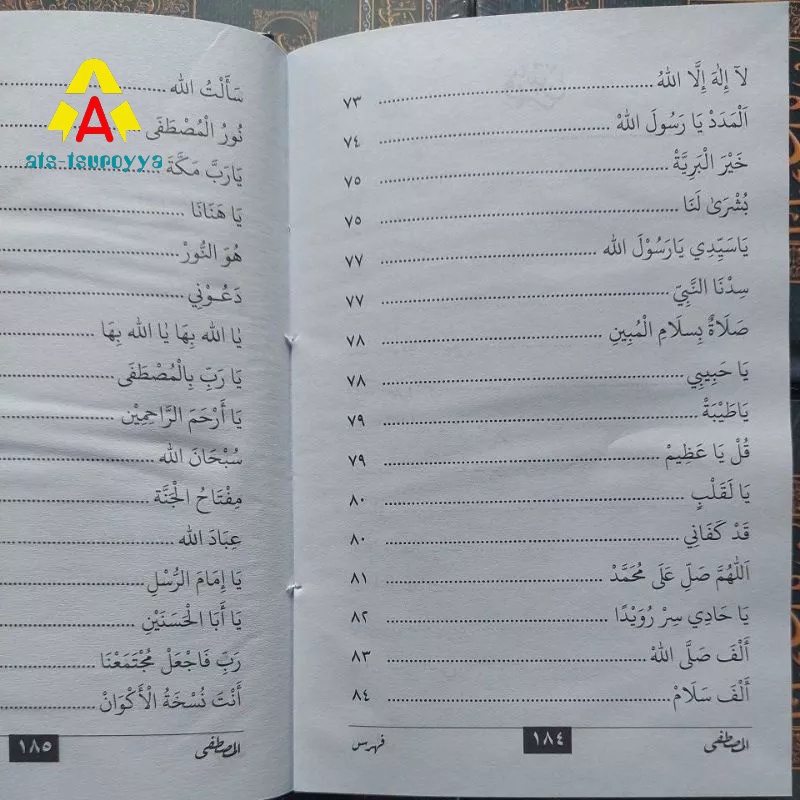 لآ إِلٰهَ إِلَّا اللهُ ........ ٧٣
اَلْمَدَدْ يَا رَسُولَ اللهْ ........ ٧٤
خَيْرَ الْبَرِيَّةْ ........ ٧٥
بُشْرَىٰ لَنَا ........ ٧٥
يَاسَيِّدِي يَارَسُوْلَ الله ........ ٧٧
سِدْنَا النَّبِيّ ........ ٧٧
صَلَاةٌ بِسلَامِ الْمُبِينِ ........ ٧٨
يَا حَبِيبِي ........ ٧٨
يَاطَيْبَةْ ........ ٧٩
قُلْ يَا عَظِيمْ ........ ٧٩
يَا لَقَلْبٍ ........ ٨٠
قَدْ كَفَانِي ........ ٨٠
اَللّٰهُمَّ صَلِّ عَلَى مُحَمَّدْ ........ ٨١
يَا حَادِي سِرْ رُوَيْدًا ........ ٨٢
أَلْفَ صَلَّى اللهْ ........ ٨٣
أَلْفَ سَلَامْ ........ ٨٤
المصطفى ١٨٤ فهرس
سَأَلْتُ الله ........
نُورُ الْمُصْطَفَى ........
يَارَبَّ مَكَّةَ ........
يَا هَنَانَا ........
هُوَ النُّورْ ........
دَعُـوْنِي ........
يَا الله بِهَا يَا الله بِهَا ........
يَا رَبِّ بِالْمُصْطَفَى ........
يَا أَرْحَمَ الرَّاحِمِيْن ........
سُبْحَانَ الله ........
مِفْتَاحُ الْجَنَّة ........
عِبَادَ الله ........
يَا إِمَامَ الرُّسْلِ ........
يَا أَبَا الْحَسَنَيْنِ ........
رَبِّ فَاجْعَلْ مُجْتَمَعْنَا ........
أَنْتَ نُسْخَةُ الْأَكْوَانْ ........
المصطفى ١٨٥
ats-tsuroyya